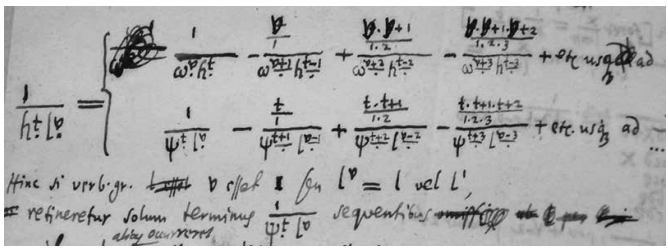 1/(h^t l^v) = { 1/(ω^v h^t) − (v/1)/(ω^(v+1) h^(t−1)) + (v·v+1/1·2)/(ω^(v+2) h^(t−2)) − (v·v+1·v+2/1·2·3)/(ω^(v+3) h^(t−3)) + etc usq ad
1/(ψ^t l^v) − (t/1)/(ψ^(t+1) l^(v−1)) + (t·t+1/1·2)/(ψ^(t+2) l^(v−2)) − (t·t+1·t+2/1·2·3)/(ψ^(t+3) l^(v−3)) + etc. usq ad ...
Hinc si verb. gr. v esset 1 seu l^v = l vel l^1,
retineretur solum terminus 1/(ψ^t l^v) sequentibus